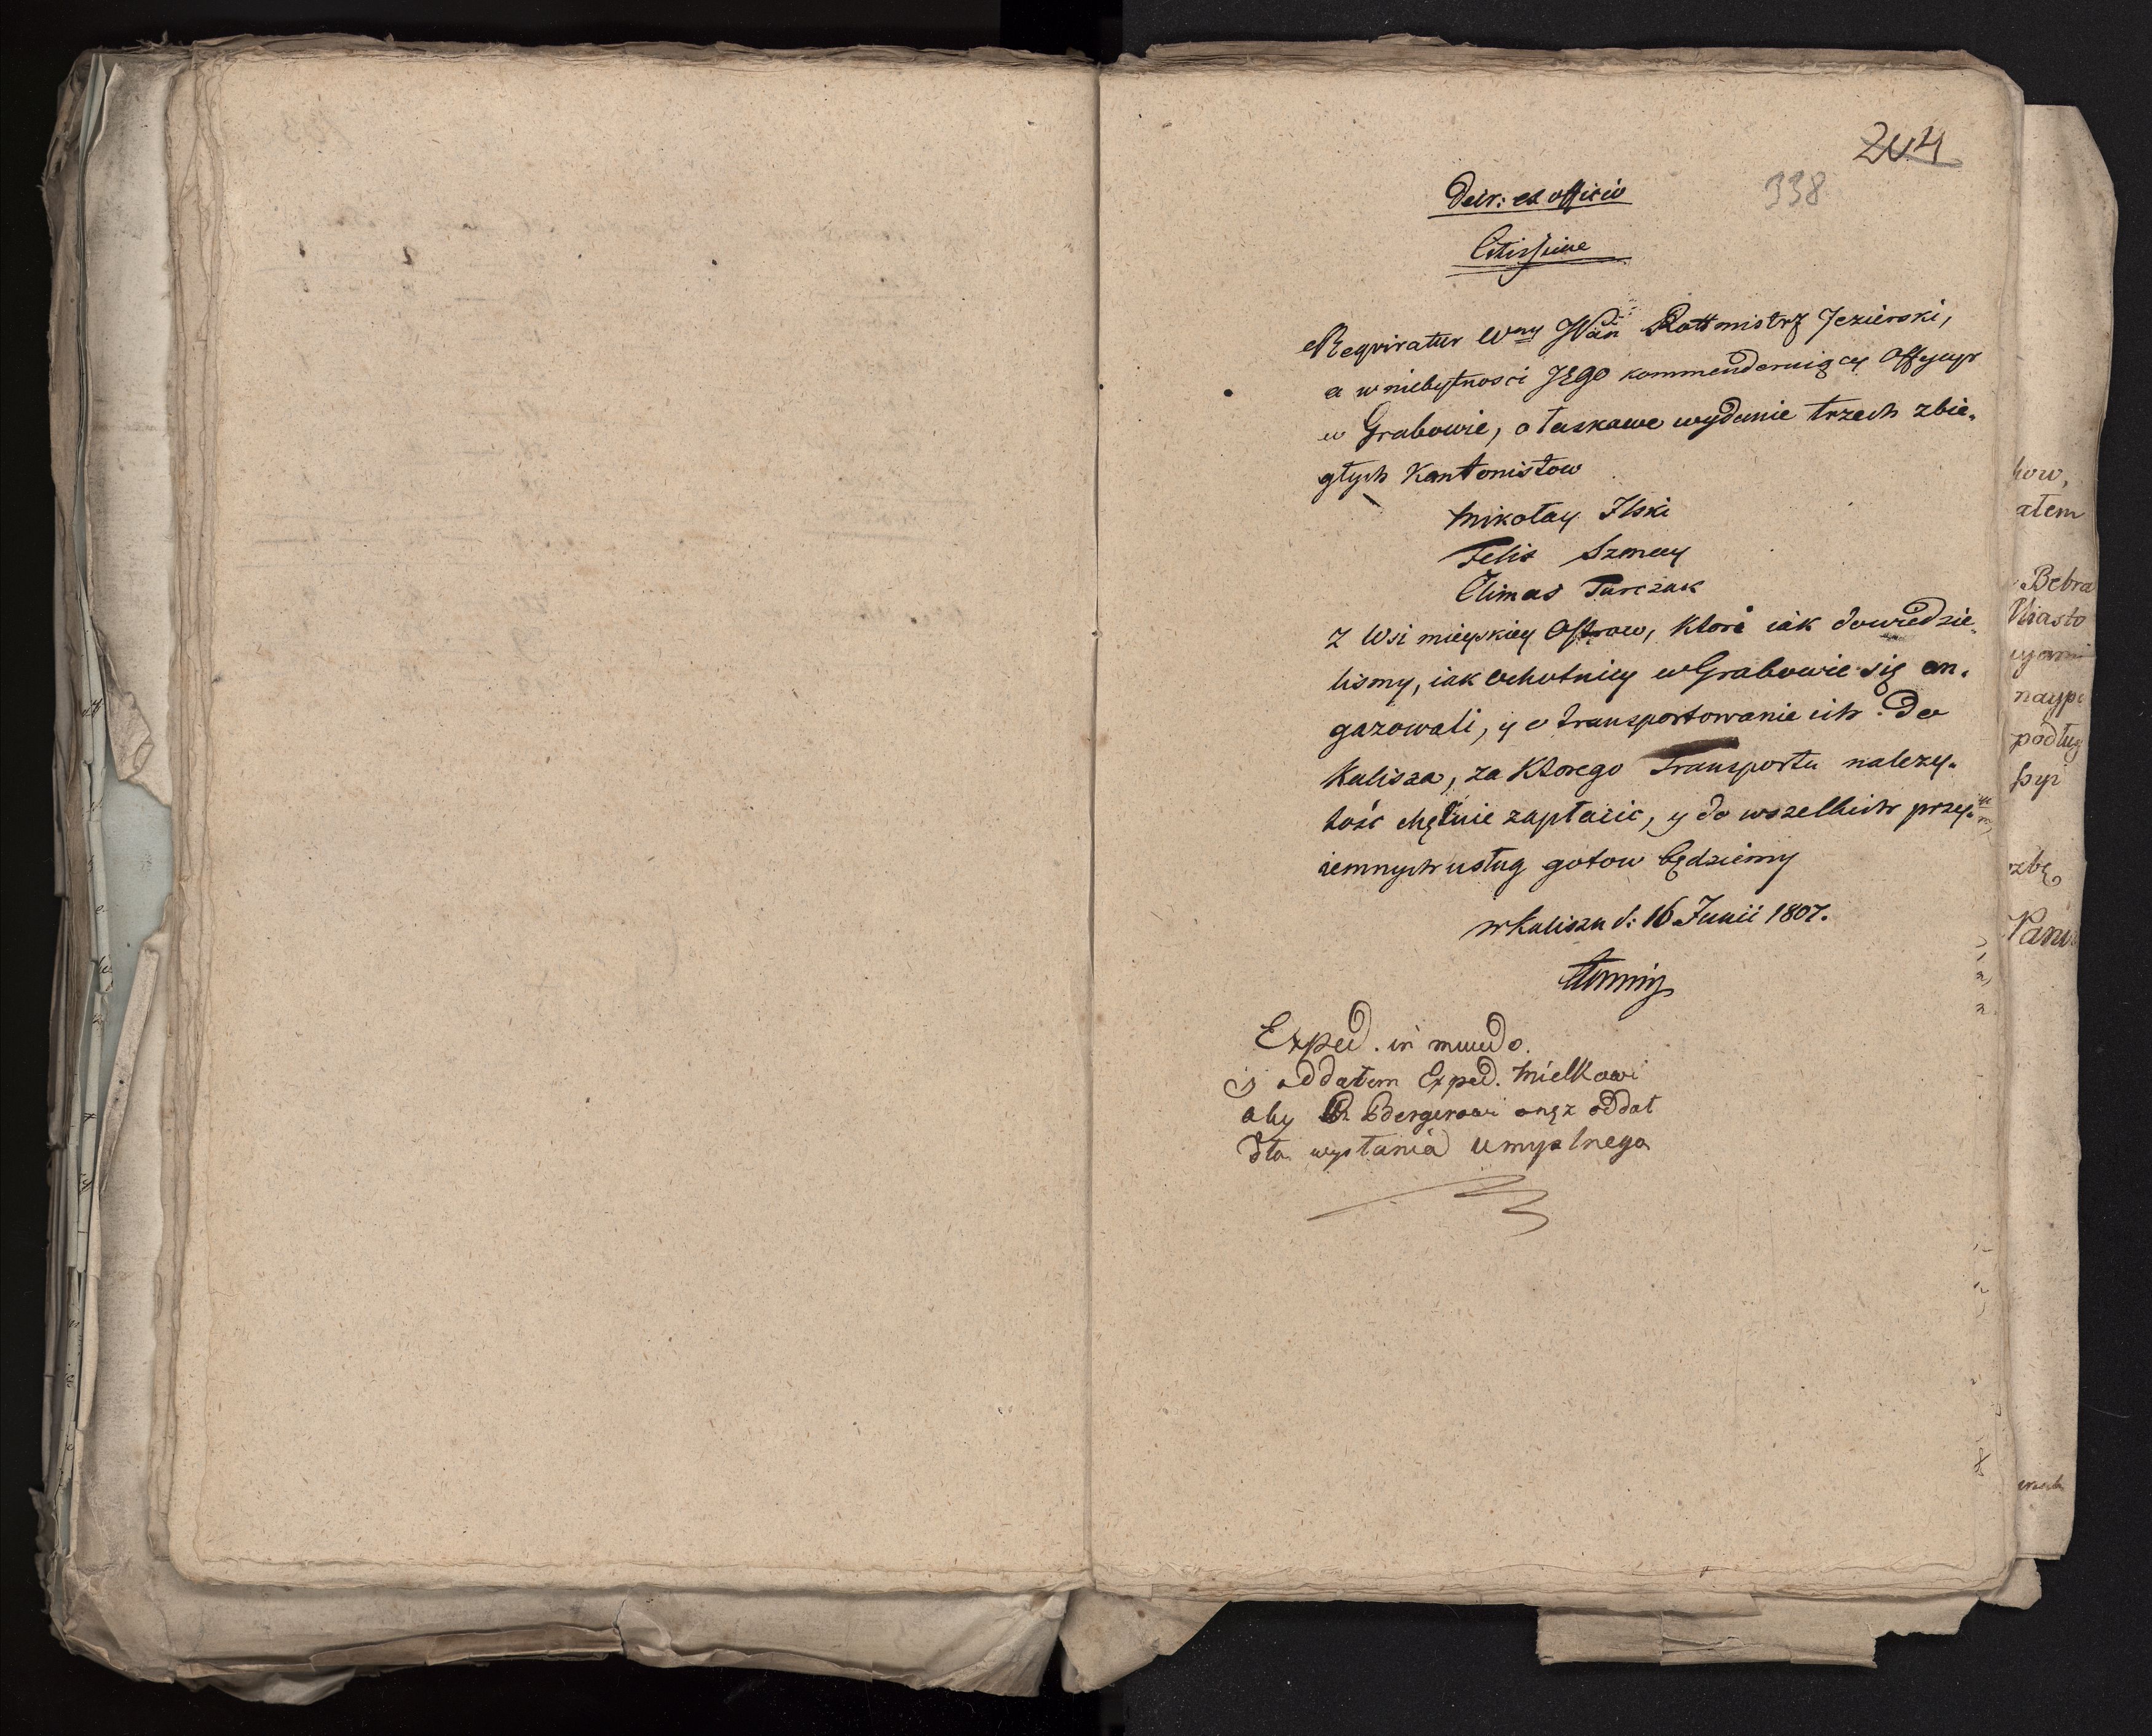 204
338
Decr: ex officio
Citissime
Requiratur Wny JPan Rottmistrz Jezierski,
a w niebytnosci JEgo kommenderuiący Officyr
w Grabowie, o łaskawe wydanie trzech zbie-
głych Kantonistow
Mikołay Ilski
Felix Szmay
Climas Turczak
z Wsi mieyskiey Ostrow, ktore iak dowiedzie-
lismy, iak ochotnicy w Grabowie się an-
gazowali, y o transportowanie ich do
Kalisza, za ktorego Transportu nalezy-
tość chętnie zapłacic, y do wszelkich przy-
iemnych usług gotow będziemy
w Kaliszu d: 16 Junii 1807.
Exped. in mundo.
y oddałem Exped. Mielkowi
aby P. Bergerowi onęz oddał
dla wysłania umyslnego
how,
ałem
Bebra
Miasto
naype
podług
spi
zbę